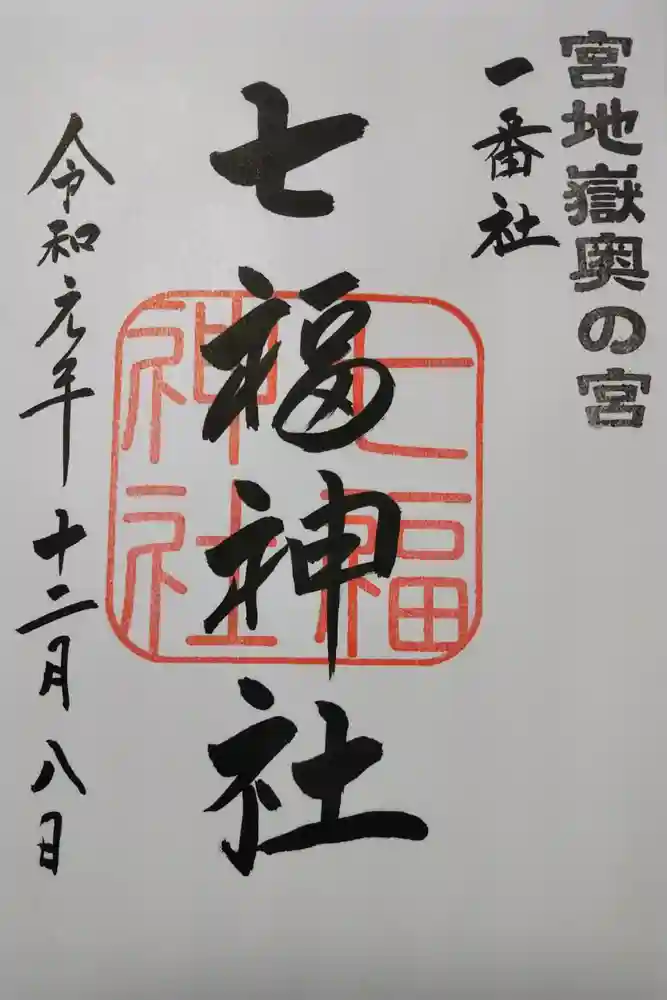 宮地嶽奥の宮
一番社
七福神社
七福
神社
令和元年十二月八日